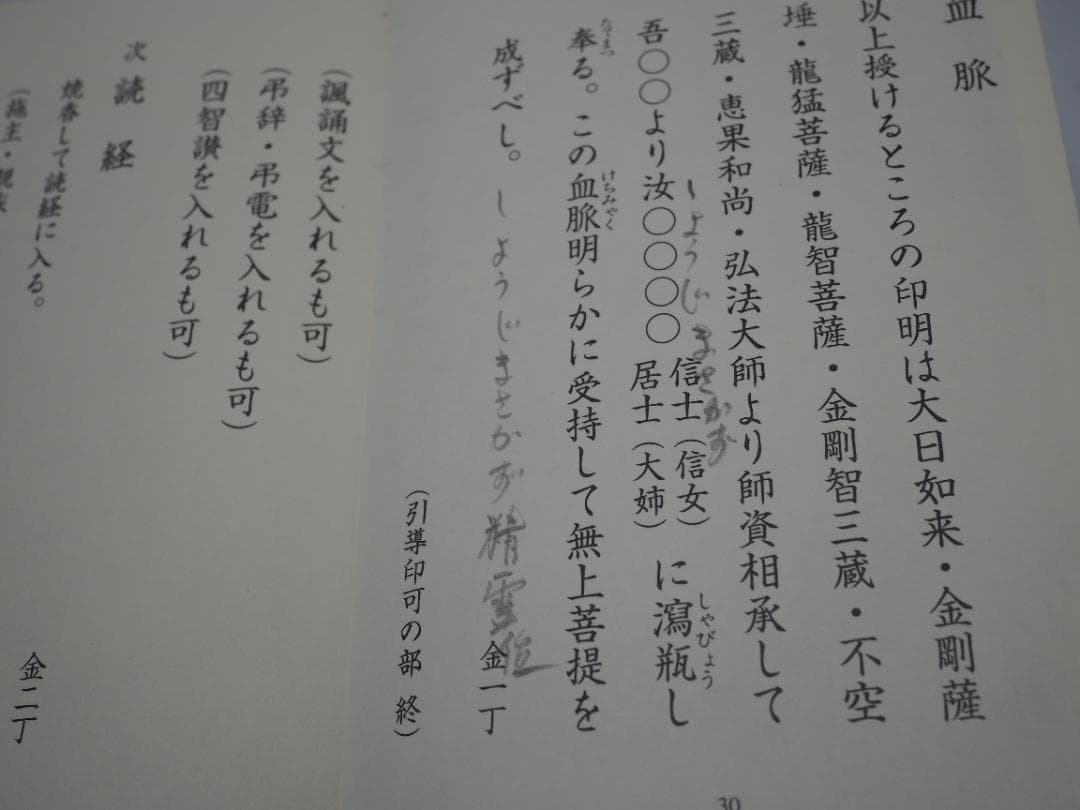 血脈
以上授けるところの印明は大日如来・金剛薩
埵・龍猛菩薩・龍智菩薩・金剛智三蔵・不空
三蔵・恵果和尚・弘法大師より師資相承して
吾〇〇より汝〇〇〇〇信士（信女）居士（大姉）に瀉瓶し
しょうじまさかず
しゃびょう
奉る。この血脈明らかに受持して無上菩提を
たてまつ
けちみゃく
成ずべし。
しようじまさかず精霊位
金一丁
（引導印可の部 終）
（諷誦文を入れるも可）
（弔辞・弔電を入れるも可）
（四智讃を入れるも可）
次 読経
焼香して読経に入る。
（施主・親族
金二丁
30